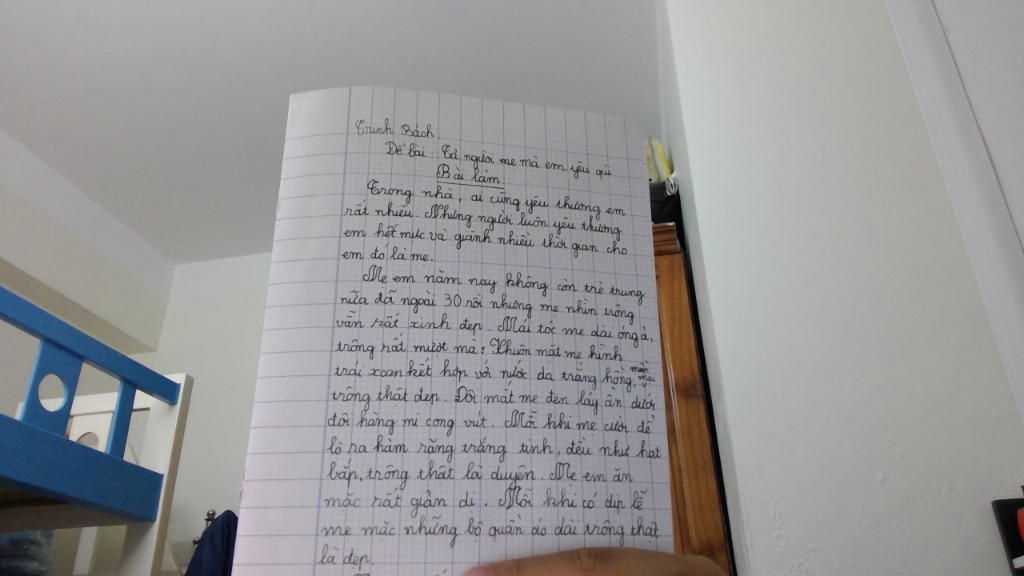 Trinh sách
Đề bài: Tả người mẹ mà em yêu quí
Bài làm
Trong nhà, ai cũng yêu thương em
rất nhiều. Nhưng người luôn yêu thương
em hết mực và giành nhiều thời gian cho
em đó là mẹ.
Mẹ em năm nay không còn trẻ trung
nữa đã ngoài 30 rồi nhưng mẹ nhìn trông
vẫn rất xinh đẹp. Mái tóc mẹ dài óng ả,
trông rất mượt mà. Khuôn mặt mẹ hình
trái xoan kết hợp với nước da trắng hồng, mền mại
trông thật đẹp. Đôi mắt mẹ đen láy ẩn dưới
đôi hàng mi cong vút. Mỗi khi mẹ cười để
lộ ra hàm răng trắng tinh, đều như hạt
bắp, trông thật là duyên. Mẹ em ăn
mặc rất giản dị. Mỗi khi có dịp lễ
mẹ mặc những bộ quần áo dài trông thật
là đẹp.